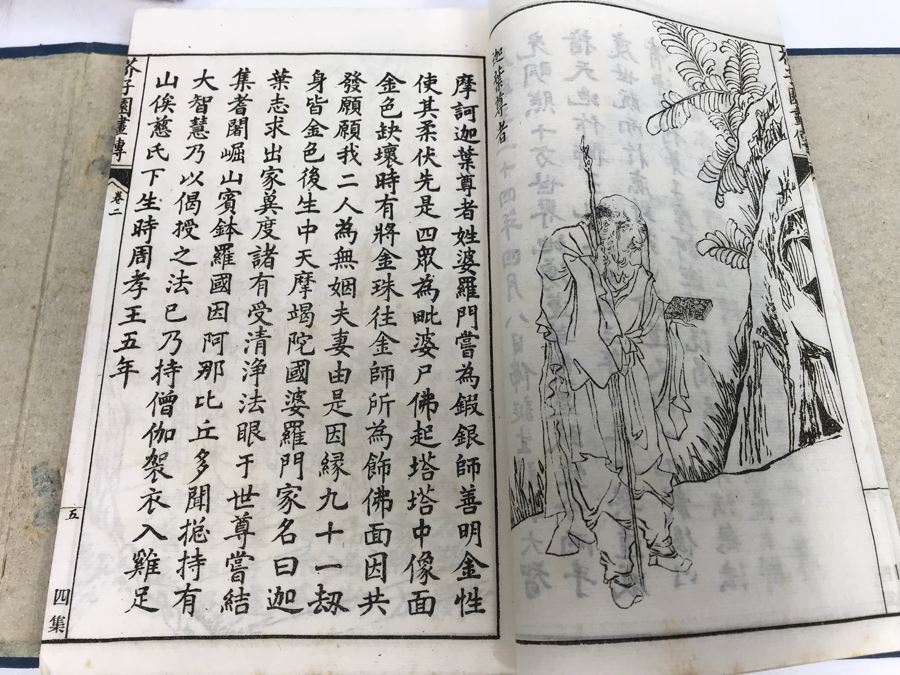 迦葉尊者
摩訶迦葉尊者姓婆羅門嘗為鍜銀師善明金性
使其柔伏先是四眾為毗婆尸佛起塔塔中像面
金色缺壞時有將金珠往金師所為飾佛面因共
發願願我二人為無姻夫妻由是因緣九十一劫
身皆金色後生中天摩竭陀國婆羅門家名曰迦
葉志求出家冀度諸有受清淨法眼于世尊嘗結
集耆闍崛山賓鉢羅國因阿那比丘多聞摠持有
大智慧乃以偈授之法已乃持僧伽袈衣入雞足
山俟慈氏下生時周孝王五年
芥子園畫傳
卷二
五
四集